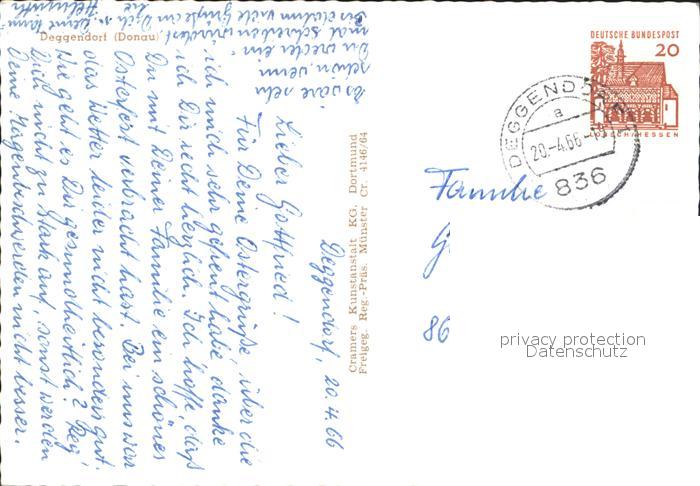 Deggendorf (Donau)
Deggendorf, 20.4.66
Lieber Gottfried!
Für Deine Ostergrüße, über die
ich mich sehr gefreut habe, danke
ich Dir recht herzlich. Ich hoffe, daß
Du mit Deiner Familie ein schönes
Osterfest verbracht hast. Bei uns war
das Wetter leider nicht besonders gut.
Wie geht es Dir gesundheitlich? Reg'
Dich nicht zu stark auf, sonst werden
Deine Magenbeschwerden nicht besser.
Es wäre sehr
schön, wenn
Du wieder ein-
mal schreiben würdest.
viele Grüße an Dich u. Deine Fam.
Helmuth
Cramers Kunstanstalt KG. Dortmund
Freigeg. Reg.-Präs. Münster Cr. 4146/64
DEUTSCHE BUNDESPOST
20
HESSEN
DEGGENDORF
a
20.-4.66
836
Familie
G
86
privacy protection
Datenschutz